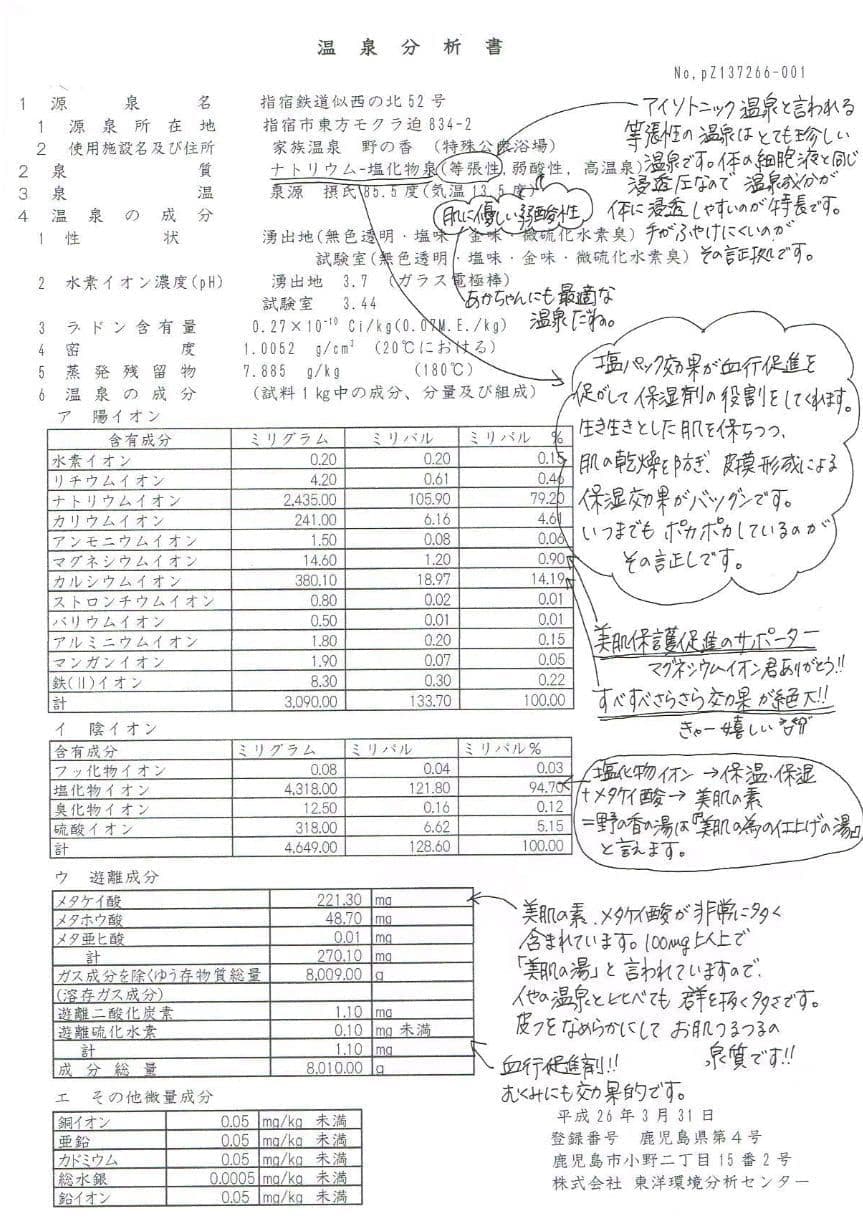 温泉分析書
No,pZ137266-001
1 源泉名 指宿鉄道似西の北52号
1 源泉所在地 指宿市東方モクラ迫834-2
2 使用施設名及び住所 家族温泉 野の香 (特殊公衆浴場)
2 泉質 ナトリウム-塩化物泉(等張性,弱酸性,高温泉)
3 泉温 泉源 摂氏85.5度(気温13.5度)
4 温泉の成分
1 性状 湧出地(無色透明・塩味・金味・微硫化水素臭)
試験室(無色透明・塩味・金味・微硫化水素臭)
2 水素イオン濃度(pH) 湧出地 3.7 (ガラス電極棒)
試験室 3.44
3 ラドン含有量 0.27×10⁻¹⁰ Ci/kg(0.07M.E./kg)
4 密度 1.0052 g/cm³ (20℃における)
5 蒸発残留物 7.885 g/kg (180℃)
6 温泉の成分 (試料1kg中の成分、分量及び組成)
アイソトニック温泉と言われる
等張性の温泉はとても珍しい
温泉です。体の細胞液と同じ
浸透圧なので 温泉成分が
体に浸透しやすいのが特長です。
手がふやけにくいのが
その証拠です。
肌に優しい弱酸性
あかちゃんにも最適な
温泉だね。
塩パック効果が血行促進を
促がして保湿剤の役割をしてくれます。
生き生きとした肌を保ちつつ、
肌の乾燥を防ぎ、皮膜形成による
保湿効果がバツグンです。
いつまでも ポカポカしているのが
その証しです。
ア 陽イオン
含有成分 ミリグラム ミリバル ミリバル %
水素イオン 0.20 0.20 0.15
リチウムイオン 4.20 0.61 0.46
ナトリウムイオン 2,435.00 105.90 79.20
カリウムイオン 241.00 6.16 4.61
アンモニウムイオン 1.50 0.08 0.06
マグネシウムイオン 14.60 1.20 0.90
カルシウムイオン 380.10 18.97 14.19
ストロンチウムイオン 0.80 0.02 0.01
バリウムイオン 0.50 0.01 0.01
アルミニウムイオン 1.80 0.20 0.15
マンガンイオン 1.90 0.07 0.05
鉄(Ⅱ)イオン 8.30 0.30 0.22
計 3,090.00 133.70 100.00
美肌保護促進のサポーター
マグネシウムイオン君ありがとう!!
すべすべさらさら効果が絶大!!
きゃー嬉しい
イ 陰イオン
含有成分 ミリグラム ミリバル ミリバル%
フッ化物イオン 0.08 0.04 0.03
塩化物イオン 4,318.00 121.80 94.70
臭化物イオン 12.50 0.16 0.12
硫酸イオン 318.00 6.62 5.15
計 4,649.00 128.60 100.00
塩化物イオン→保温・保湿
+メタケイ酸→ 美肌の素
=野の香の湯は『美肌の為の仕上げの湯』
と言えます。
ウ 遊離成分
メタケイ酸 221.30 mg
メタホウ酸 48.70 mg
メタ亜ヒ酸 0.01 mg
計 270.10 mg
ガス成分を除くゆう存物質総量 8,009.00 g
(溶存ガス成分)
遊離二酸化炭素 1.10 mg
遊離硫化水素 0.10 mg 未満
計 1.10 mg
成分総量 8,010.00 g
美肌の素、メタケイ酸が非常に多く
含まれています。100mg以上で
「美肌の湯」と言われていますので、
他の温泉と比べても 群を抜く多さです。
皮フをなめらかにして お肌つるつるの
泉質です!!
血行促進剤!!
むくみにも効果的です。
エ その他微量成分
銅イオン 0.05 mg/kg 未満
亜鉛 0.05 mg/kg 未満
カドミウム 0.05 mg/kg 未満
総水銀 0.0005 mg/kg 未満
鉛イオン 0.05 mg/kg 未満
平成26年3月31日
登録番号 鹿児島県第4号
鹿児島市小野二丁目15番2号
株式会社 東洋環境分析センター